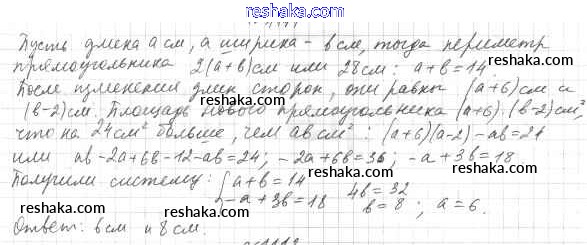 reshaka.com
Пусть длина a см, а ширина - b см, тогда периметр
прямоугольника 2(a+b) см или 28 см: a+b=14.
reshaka.com
После изменения длин сторон, они равны (a+6) см и
(b-2) см. Площадь нового прямоугольника (a+6)·(b-2) см²,
reshaka.com reshaka.com
что на 24 см² больше, чем ab см²: (a+6)(a-2)-ab=24
или ab-2a+6b-12-ab=24; -2a+6b=36; -a+3b=18
reshaka.com reshaka.com
Получили систему: { a+b=14 4b=32
-a+3b=18 b=8; a=6.
reshaka.com reshaka.com
Ответ: 6 см и 8 см.
reshaka.com